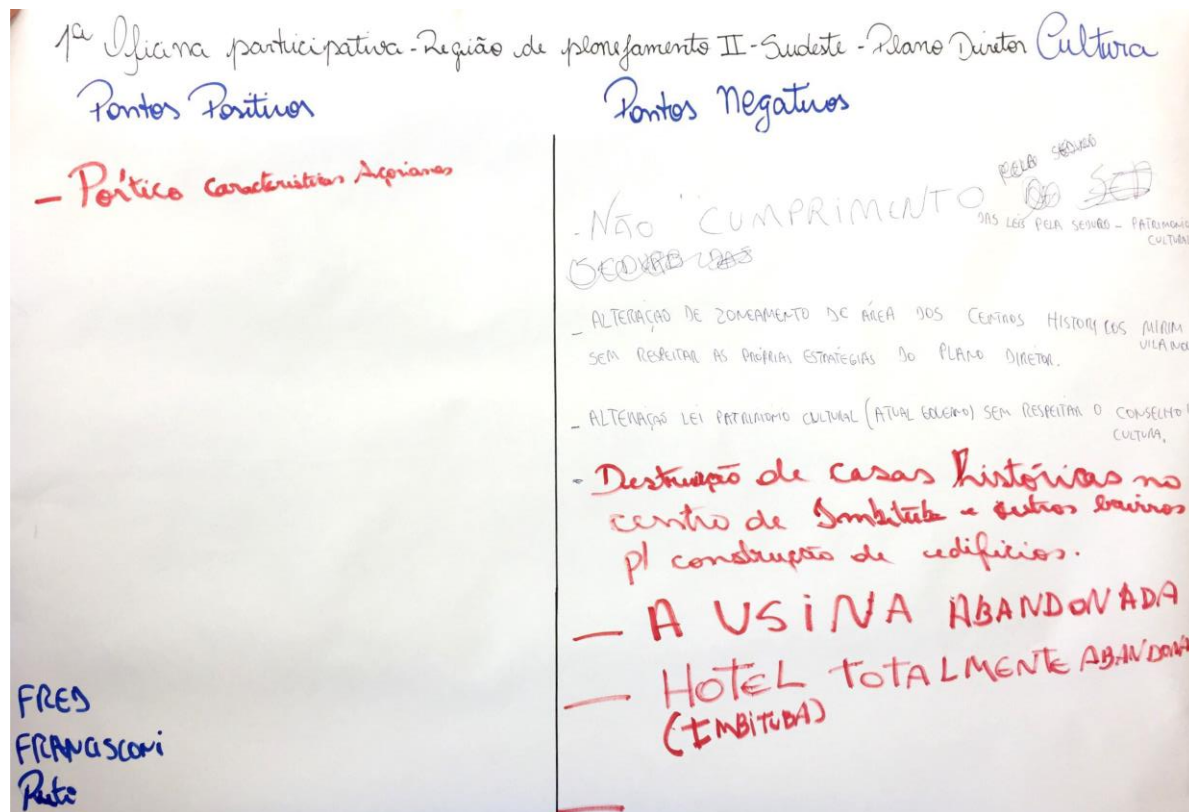 1ª Oficina participativa - Região de planejamento II - Sudeste - Plano Diretor Cultura
Pontos Positivos
- Pórtico características Açorianas
FRED
FRANCISCONI
Pontos Negativos
PELA SEDURB
- NÃO CUMPRIMENTO
DAS LEIS PELA SEDURB - PATRIMONIO
CULTURAL
- ALTERAÇÃO DE ZONEAMENTO DE ÁREA DOS CENTROS HISTORICOS MIRIM
VILA NOV
SEM RESPEITAR AS PRÓPRIAS ESTRATÉGIAS DO PLANO DIRETOR.
- ALTERAÇÃO LEI PATRIMONIO CULTURAL (ATUAL GOVERNO) SEM RESPEITAR O CONSELHO
CULTURA.
- Destruição de casas históricas no
centro de Imbituba e outros bairros
p/ construção de edifícios.
- A USINA ABANDONADA
- HOTEL TOTALMENTE ABANDONA
(IMBITUBA)